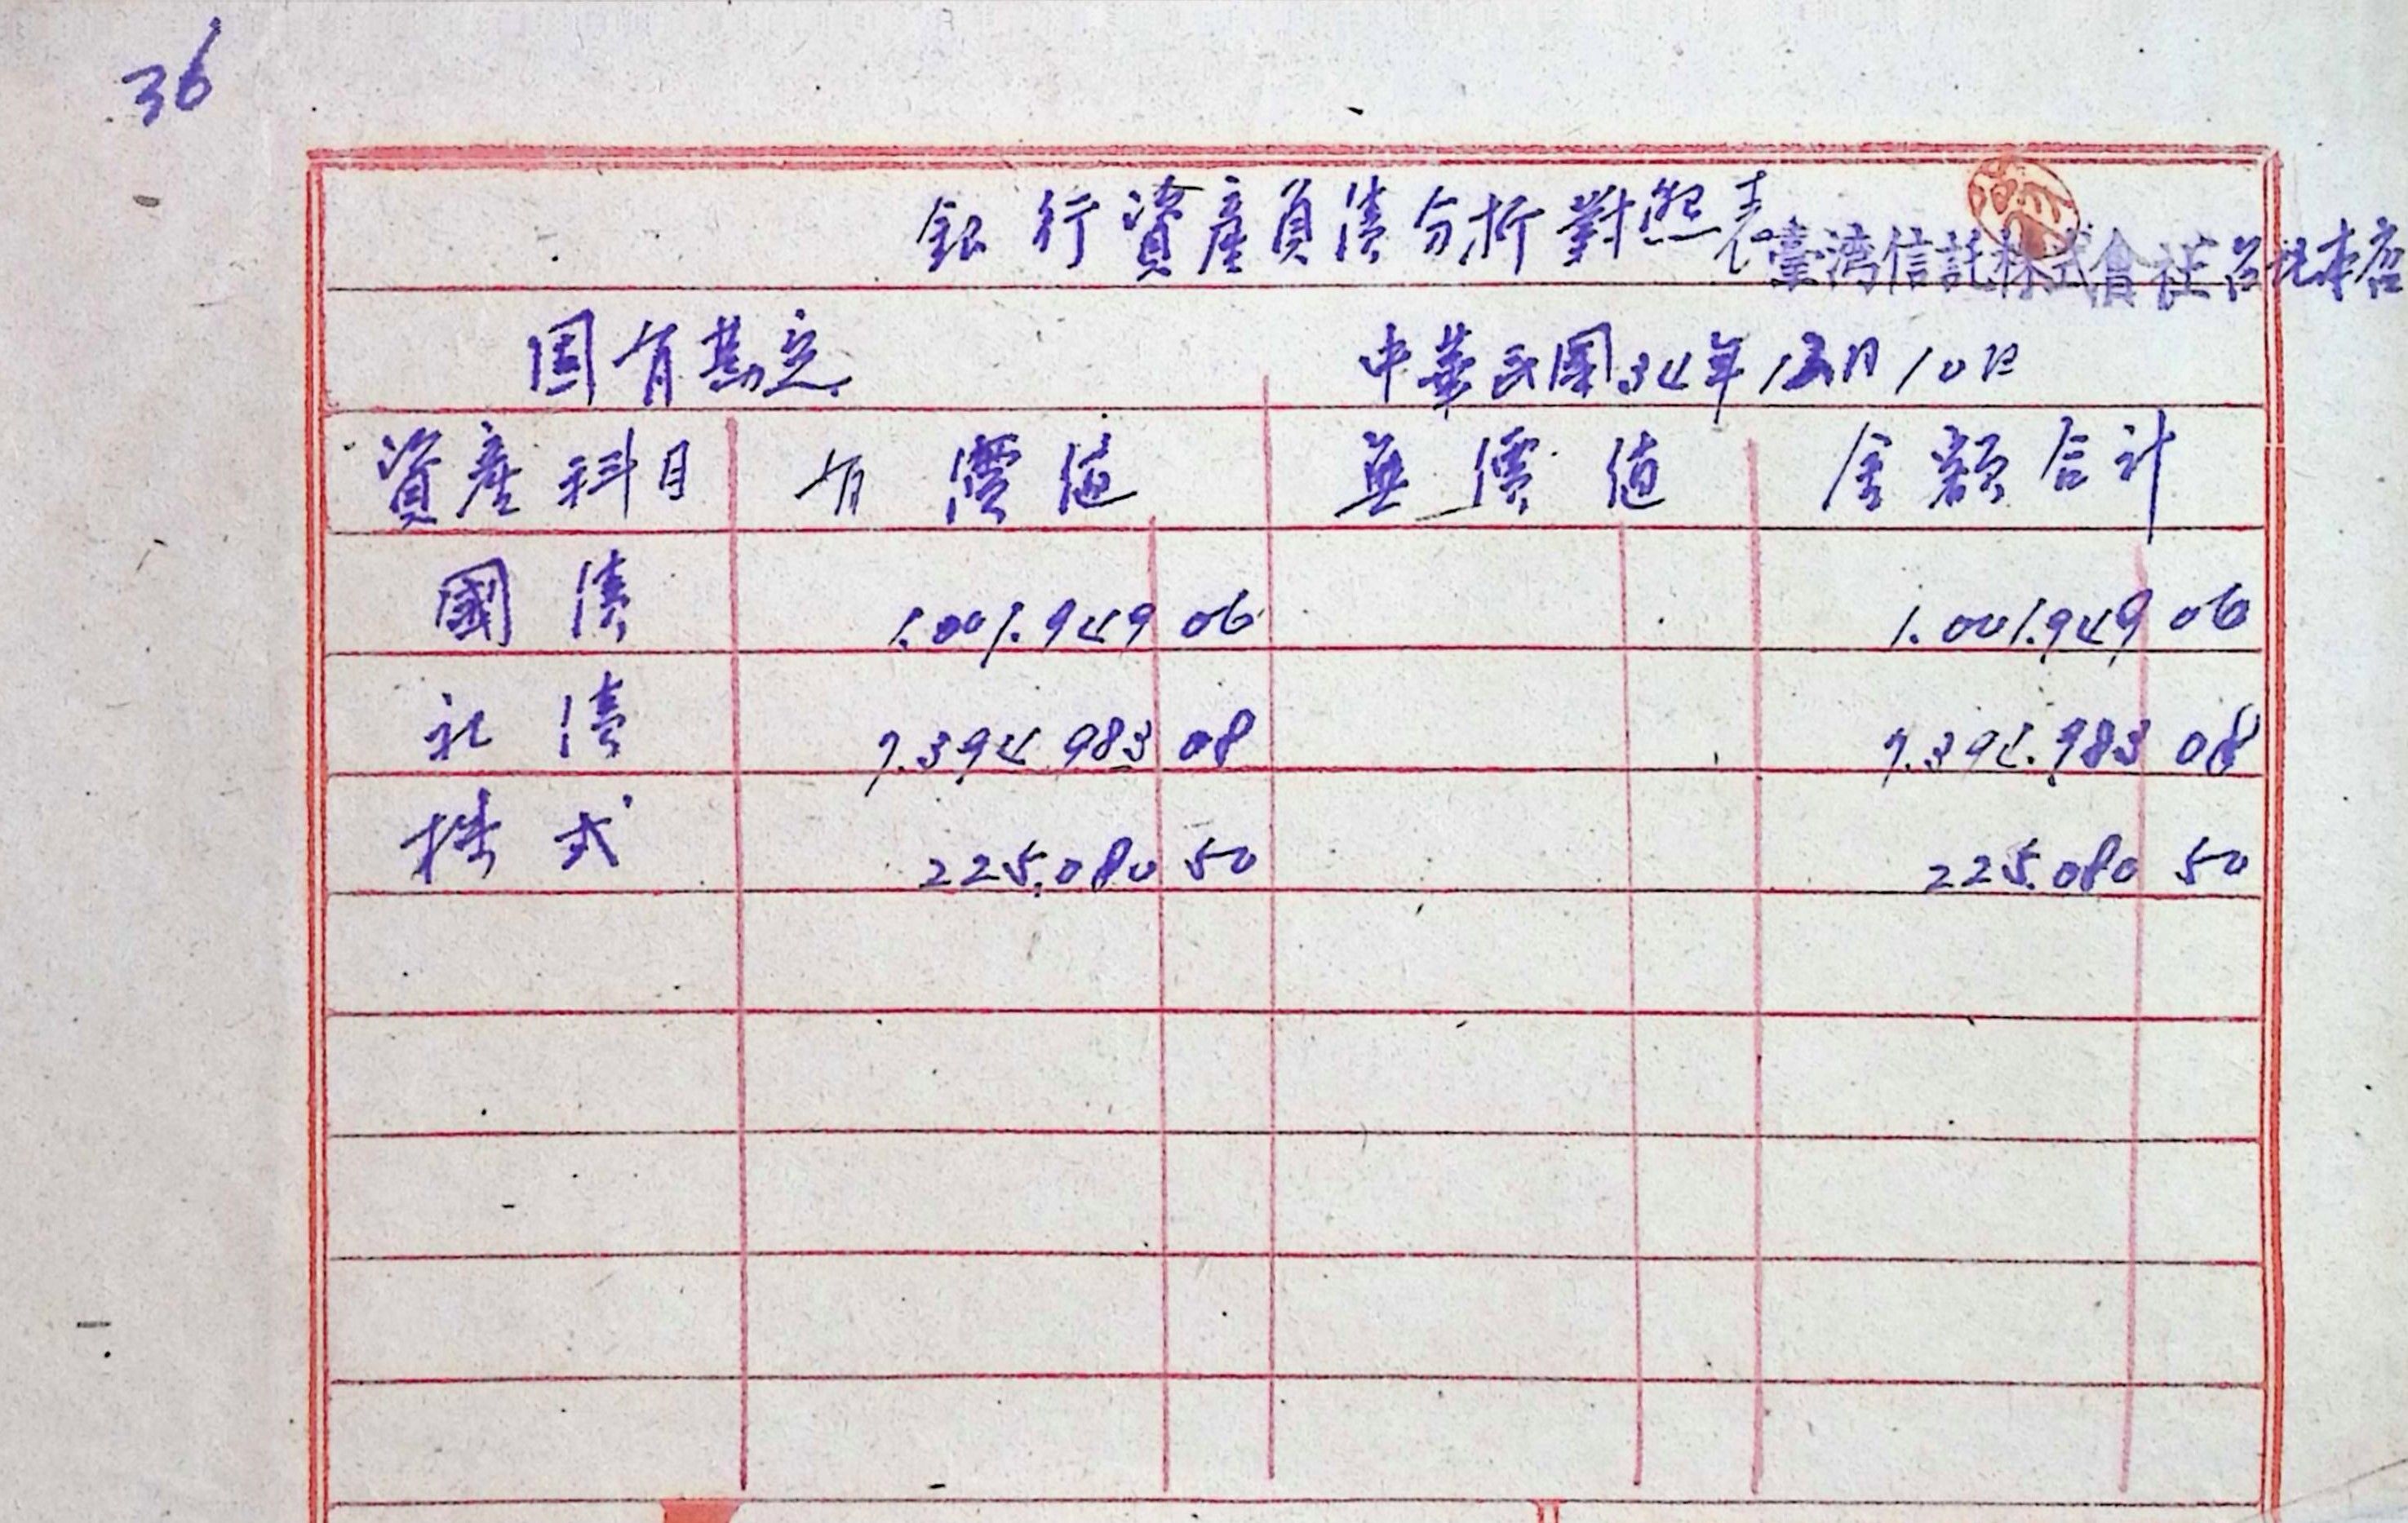 36
銀行資產負債分析對照表 臺湾信託株式會社台北本店
固有勘定 中華民國34年12月10日
資產科目 有價值 無價值 金額合計
國債 1.001.949 06 1.001.949 06
社債 7.394.983 08 7.394.983 08
株式 225.080 50 225.080 50